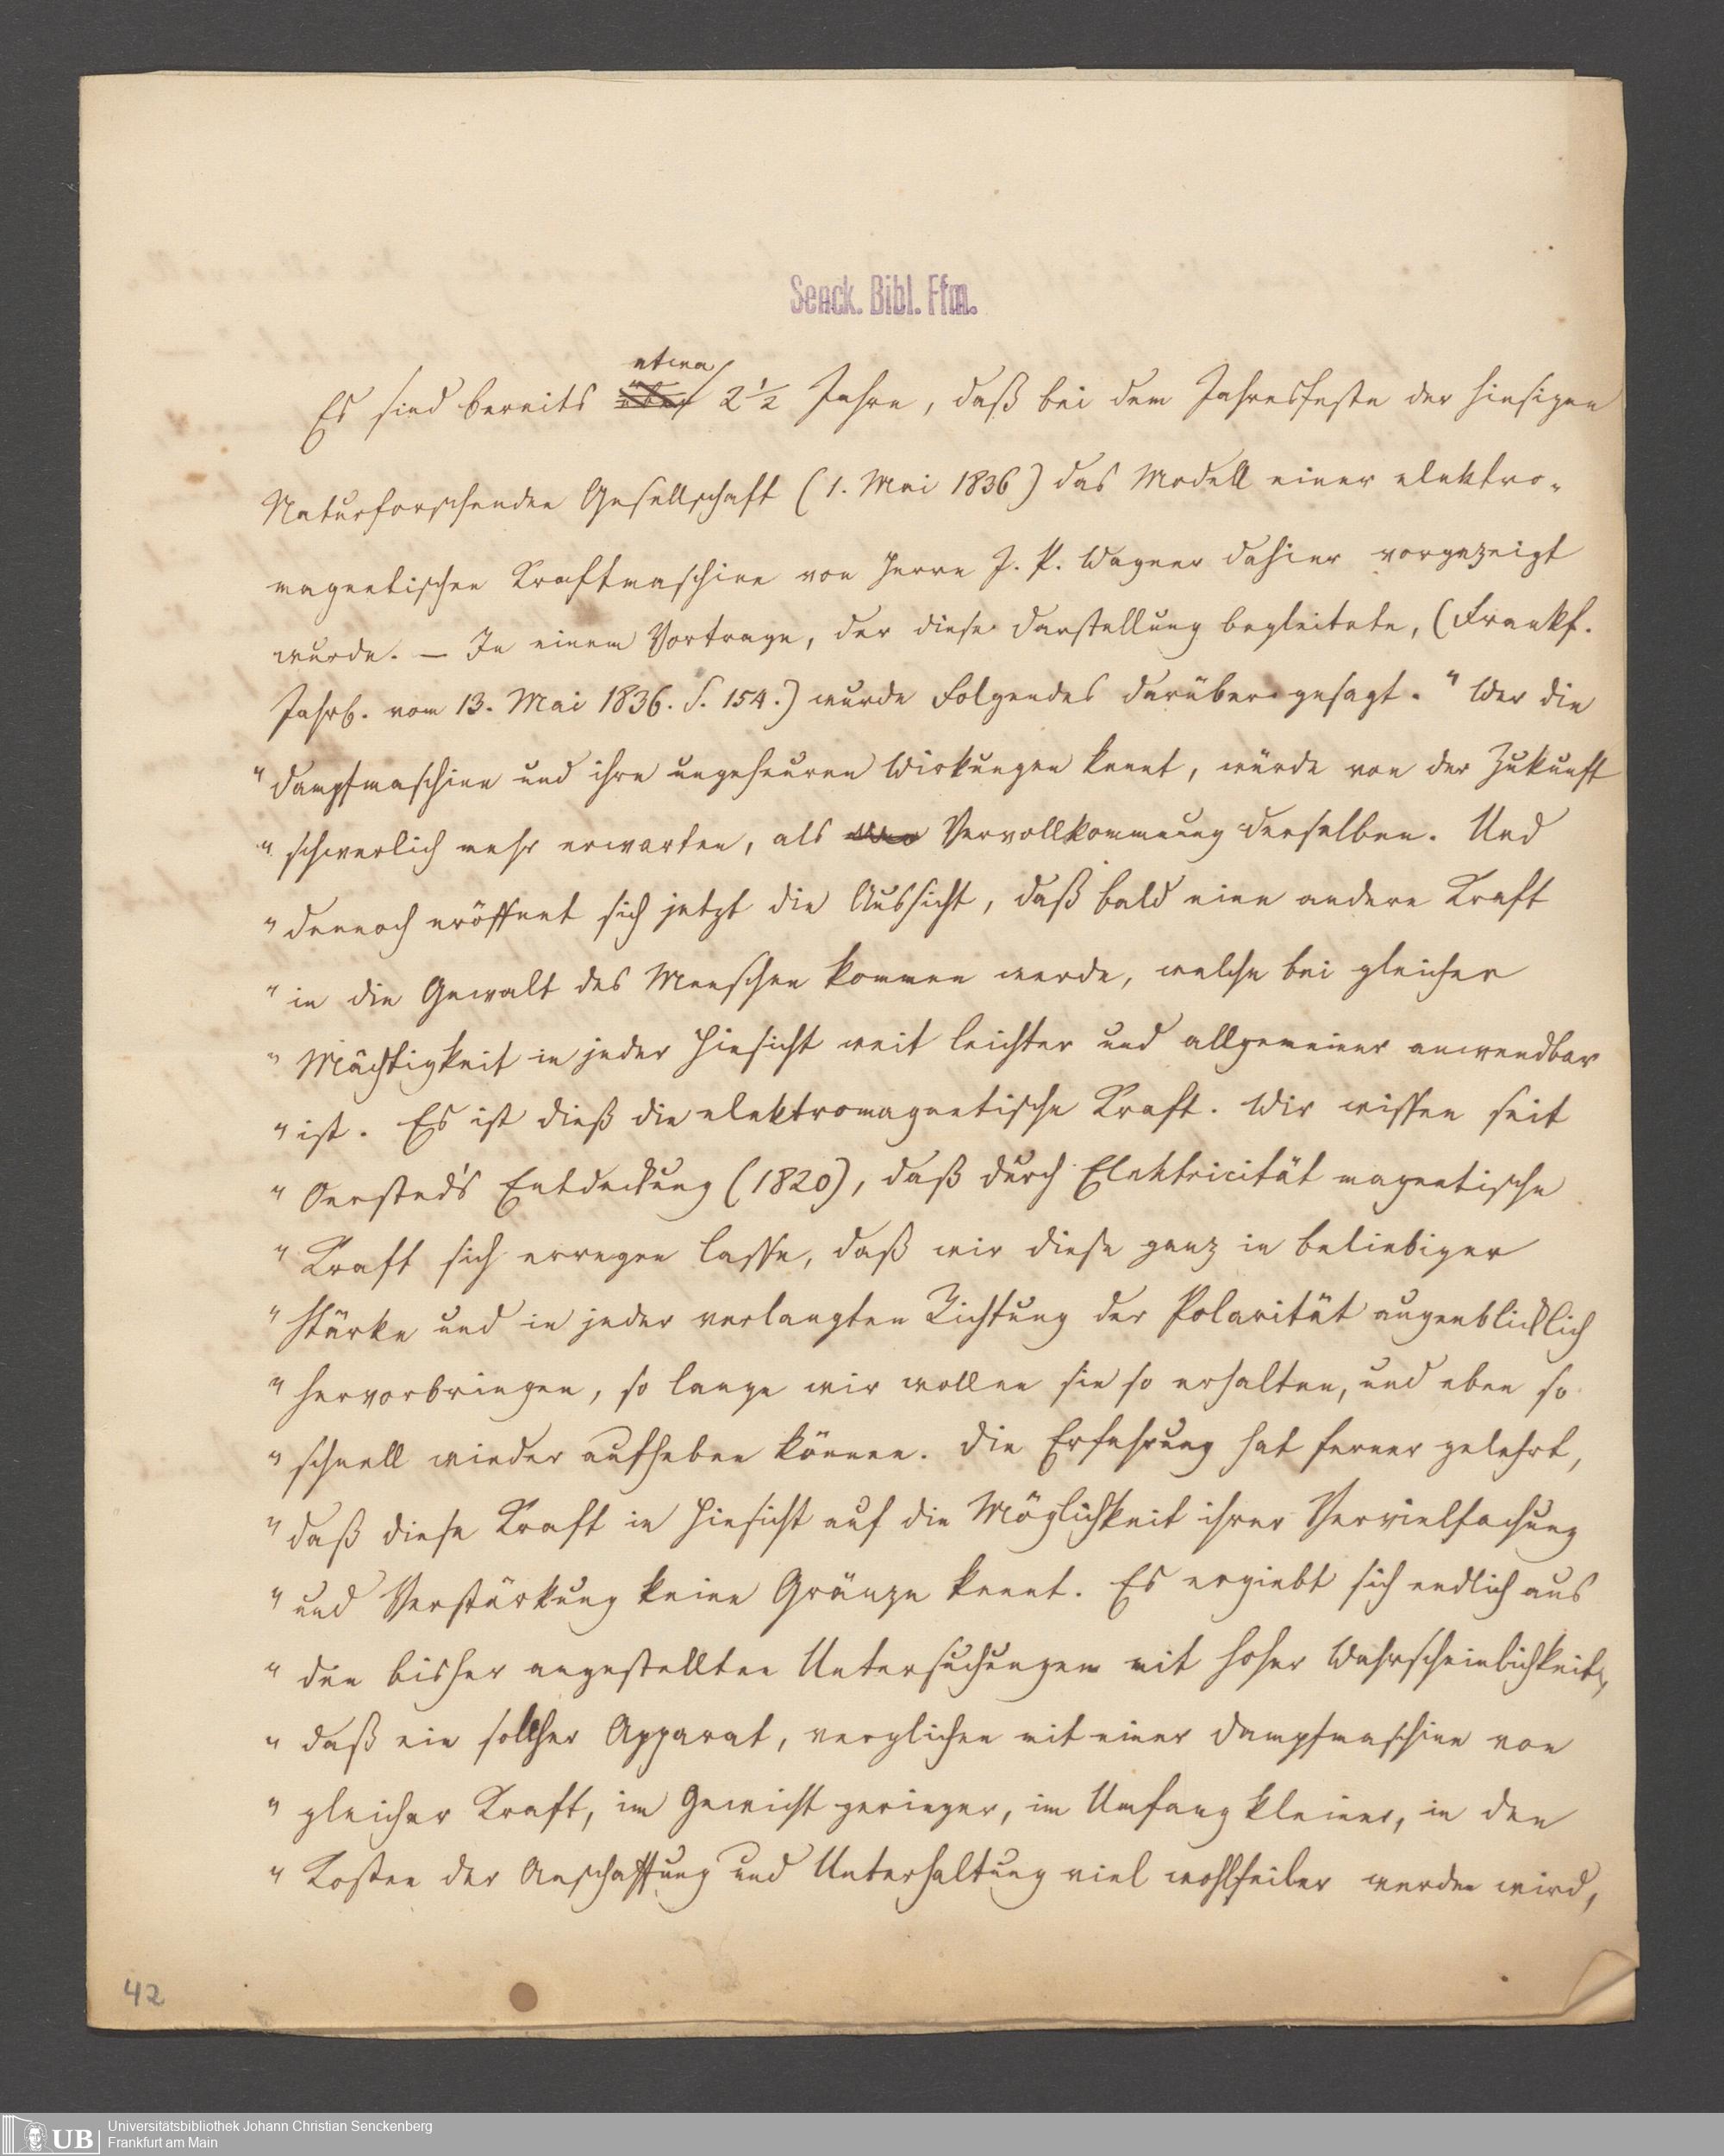 Senck. Bibl. Ffm.
etwa
Es sind bereits über 2 1/2 Jahre, daß bei dem Jahresfeste der hiesigen
Naturforschenden Gesellschaft (1. Mai 1836) das Modell einer elektro-
magnetischen Kraftmaschine von Herrn J. P. Wagner dahier vorgezeigt
wurde. — In einem Vortrage, der diese Darstellung begleitete, (Frankf.
Jahrb. vom 13. Mai 1836. S. 154.) wurde Folgendes darüber gesagt. "Wer die
" Dampfmaschine und ihre ungeheuren Wirkungen kennt, würde von der Zukunft
" schwerlich mehr erwarten, als Vervollkommnung derselben. Und
" dennoch eröffnet sich jetzt die Aussicht, daß bald eine andere Kraft
" in die Gewalt des Menschen kommen werde, welche bei gleicher
" Mächtigkeit in jeder Hinsicht weit leichter und allgemeiner anwendbar
" ist. Es ist dieß die elektromagnetische Kraft. Wir wissen seit
" Oersted's Entdeckung (1820), daß durch Elektricität magnetische
" Kraft sich erregen lasse, daß wir diese ganz in beliebiger
" Stärke und in jeder verlangten Richtung der Polarität augenblicklich
" hervorbringen, so lange wir wollen sie so erhalten, und eben so
" schnell wieder aufheben können. Die Erfahrung hat ferner gelehrt,
" daß diese Kraft in Hinsicht auf die Möglichkeit ihrer Vervielfachung
" und Verstärkung keine Gränze kennt. Es ergiebt sich endlich aus
" den bisher angestellten Untersuchungen mit hoher Wahrscheinlichkeit,
" daß ein solcher Apparat, verglichen mit einer Dampfmaschine von
" gleicher Kraft, im Gewicht geringer, im Umfang kleiner, in den
" Kosten der Anschaffung und Unterhaltung viel wohlfeiler werden wird,
42
UB
Universitätsbibliothek Johann Christian Senckenberg
Frankfurt am Main